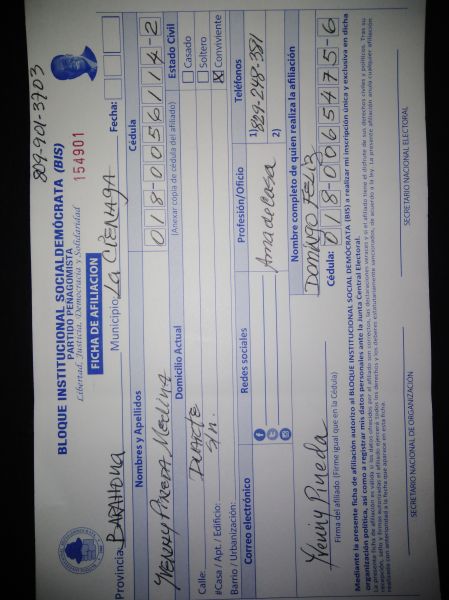 809-901-3703
BLOQUE INSTITUCIONAL SOCIALDEMÓCRATA (BIS)
PARTIDO PEÑAGOMISTA
Libertad, Justicia, Democracia y Solidaridad
154901
FICHA DE AFILIACION
Provincia: BARAHONA Municipio: LA CIENAGA Fecha:
Nombres y Apellidos
Cédula
YHENNY PINEDA Medina
018-0056114-2
(Anexar copia de cédula del afiliado)
Domicilio Actual
Estado Civil
Calle: DUARTE
Casado
#Casa / Apt. / Edificio: S/n.
Soltero
Barrio / Urbanización:
X Conviviente
Correo electrónico
Redes sociales
Profesión/Oficio
Teléfonos
Ama de casa
1) 829-248-3871
2)
Yhenny Pineda
Nombre completo de quien realiza la afiliación
DOMINGO FELIZ
Firma del afiliado (Firme igual que en la Cédula)
Cédula: 018-0065475-6
Mediante la presente ficha de afiliación autorizo al BLOQUE INSTITUCIONAL SOCIAL DEMÓCRATA (BIS) a realizar mi inscripción única y exclusiva en dicha
organización política, así como a registrar mis datos personales ante la Junta Central Electoral.
SECRETARIO NACIONAL DE ORGANIZACIÓN
SECRETARIO NACIONAL ELECTORAL